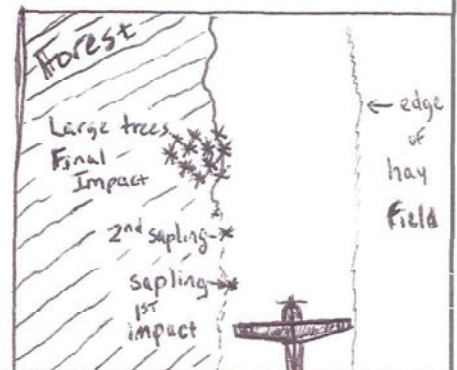 Forest
Large trees
Final
Impact
2nd sapling
sapling
1ST
impact
← edge
of
hay
field